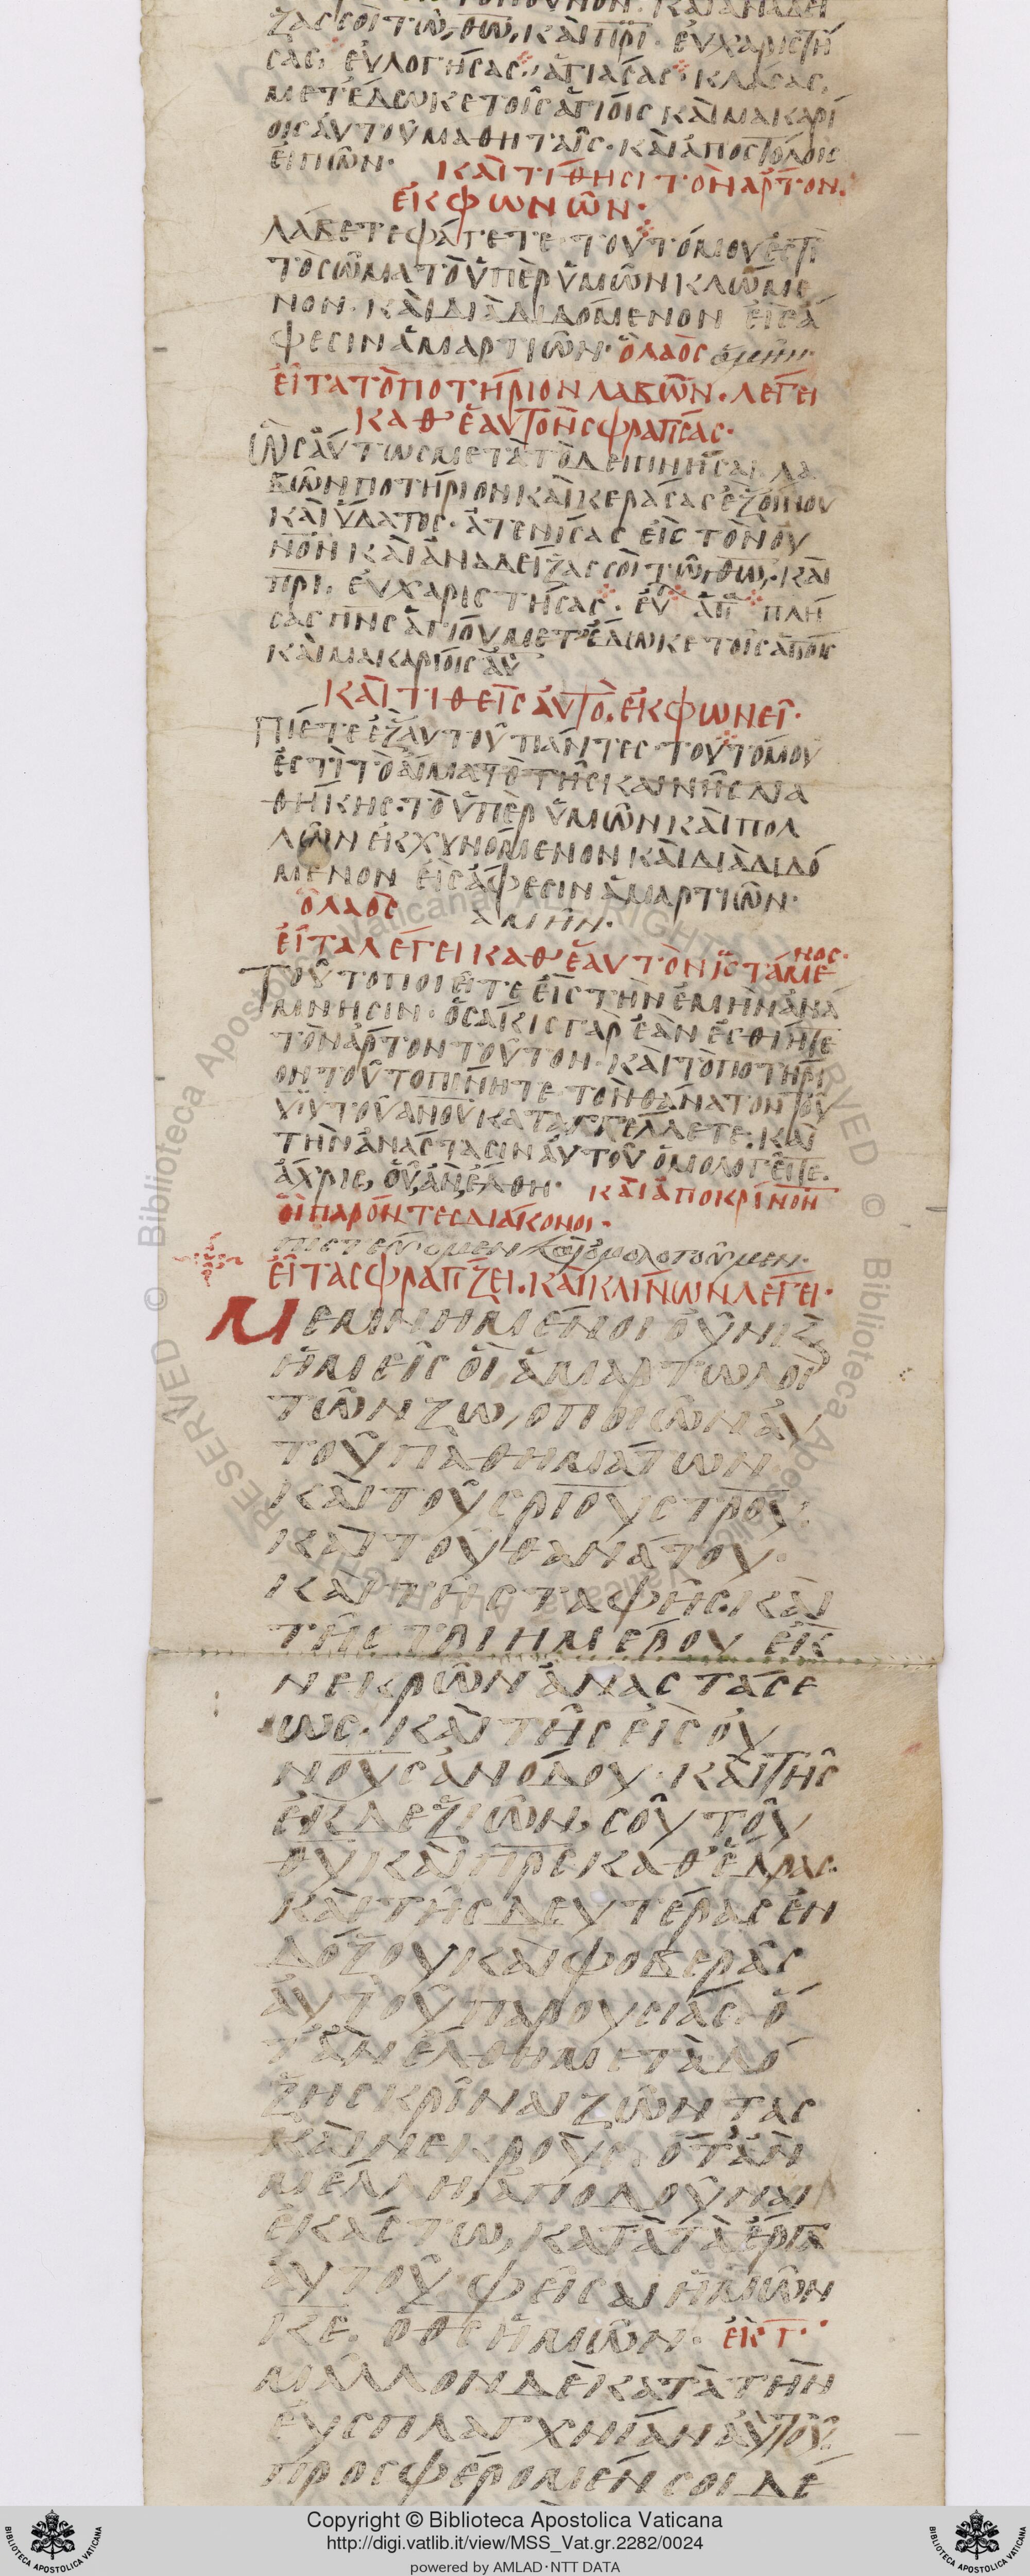 ζας σοὶ τῶ θω καὶ πρι· εὐχαριστή
σας· εὐλογήσας· ἁγιάσας· κλάσας,
μετέδωκε τοῖς ἁγίοις καὶ μακαρί
οις αὐτοῦ μαθηταῖς· καὶ ἀποστόλοις
εἰπῶν· καὶ τίθησι τὸν ἄρτον.
ἐκφωνῶν·
λάβετε φάγετε· τοῦτό μου ἐστὶ
τὸ σῶμα τὸ ὑπὲρ ὑμῶν κλώμε
νον· καὶ διαδιδόμενον εἰς ἄ
φεσιν ἁμαρτιῶν· ὁ λαὸς ἀμήν·
εἶτα τὸ ποτήριον λαβῶν· λέγει
καθ' ἑαυτὸν σφραγίσας·
ὡσαύτως μετὰ τὸ δειπνῆσαι λα
βῶν ποτήριον καὶ κεράσας ἐξ οἴνου
καὶ ὕδατος· ἀτενίσας εἰς τὸν οὐ
νὸν καὶ ἀναδείξας σοὶ τῶ θω, καὶ
πρι, εὐχαριστήσας· εὐ ἁγ πλή
σας πνς ἁγίου μετέδωκε τοῖς ἁγίοις
καὶ μακαρίοις αὐ
καὶ τιθεὶς αὐτὸ. ἐκφωνεῖ·
πίετε ἐξ αὐτοῦ πάντες· τοῦτό μου
ἐστὶ τὸ αἷμα τὸ τῆς καινῆς δια
θήκης· τὸ ὑπὲρ ὑμῶν καὶ πολ
λῶν ἐκχυνόμενον καὶ διαδιδό
μενον εἰς ἄφεσιν ἁμαρτιῶν·
ὁ λαὸς ἀμήν·
εἶτα λέγει καθ' ἑαυτὸν ἱστάμενος·
Τοῦτο ποιεῖτε εἰς τὴν ἐμὴν ἀνά
μνησιν· ὁσάκις γὰρ ἐὰν ἐσθίητε
τὸν ἄρτον τοῦτον· καὶ τὸ ποτήρι
ον τοῦτο πίνητε τὸν θάνατον τοῦ
υἱοῦ τοῦ ανου καταγγέλλετε· καὶ
τὴν ἀνάστασιν αὐτοῦ ὁμολογεῖτε.
ἄχρις, οὗ, ἂν, ἔλθη· καὶ ἀποκρίνον
οἱ παρόντες διάκονοι·
πιστεύομεν καὶ ὁμολογοῦμεν·
εἶτα σφραγίζει· καὶ κλίνων λέγει·
Μεμνημένοι οὖν κε
ἡμεῖς οἱ ἁμαρτωλοὶ
τῶν ζωοποιῶν αὐ
τοῦ παθημάτων
καὶ τοῦ σριου στρου·
καὶ τοῦ θανάτου·
καὶ τῆς ταφῆς· καὶ
τῆς τριημέρου ἐκ
νεκρῶν ἀναστάσε
ως· καὶ τῆς εἰς οὐ
νοὺς ἀνόδου· καὶ τῆς
ἐκ δεξιῶν, σοῦ τοῦ
θυ καὶ πρς καθέδρας·
καὶ τῆς δευτέρας ἐν
δόξου καὶ φοβερᾶς
αὐτοῦ παρουσίας· ὅ
τ' ἂν ἔλθη μετὰ δό
ξης κρῖναι ζῶντας
καὶ νεκρούς· ὅτ' ἂν
μέλλη, ἀποδοῦναι
ἑκάστω, κατὰ τὰ ἔργα
αὐτοῦ φεῖσαι ἡμῶν
κε, ὁ θς ἡμῶν· ἐκ γ·
μᾶλλον δὲ κατὰ τὴν
εὐσπλαγχνίαν αὐτοῦ
προσφέρομέν σοι δέ
Copyright © Biblioteca Apostolica Vaticana
http://digi.vatlib.it/view/MSS_Vat.gr.2282/0024
powered by AMLAD·NTT DATA